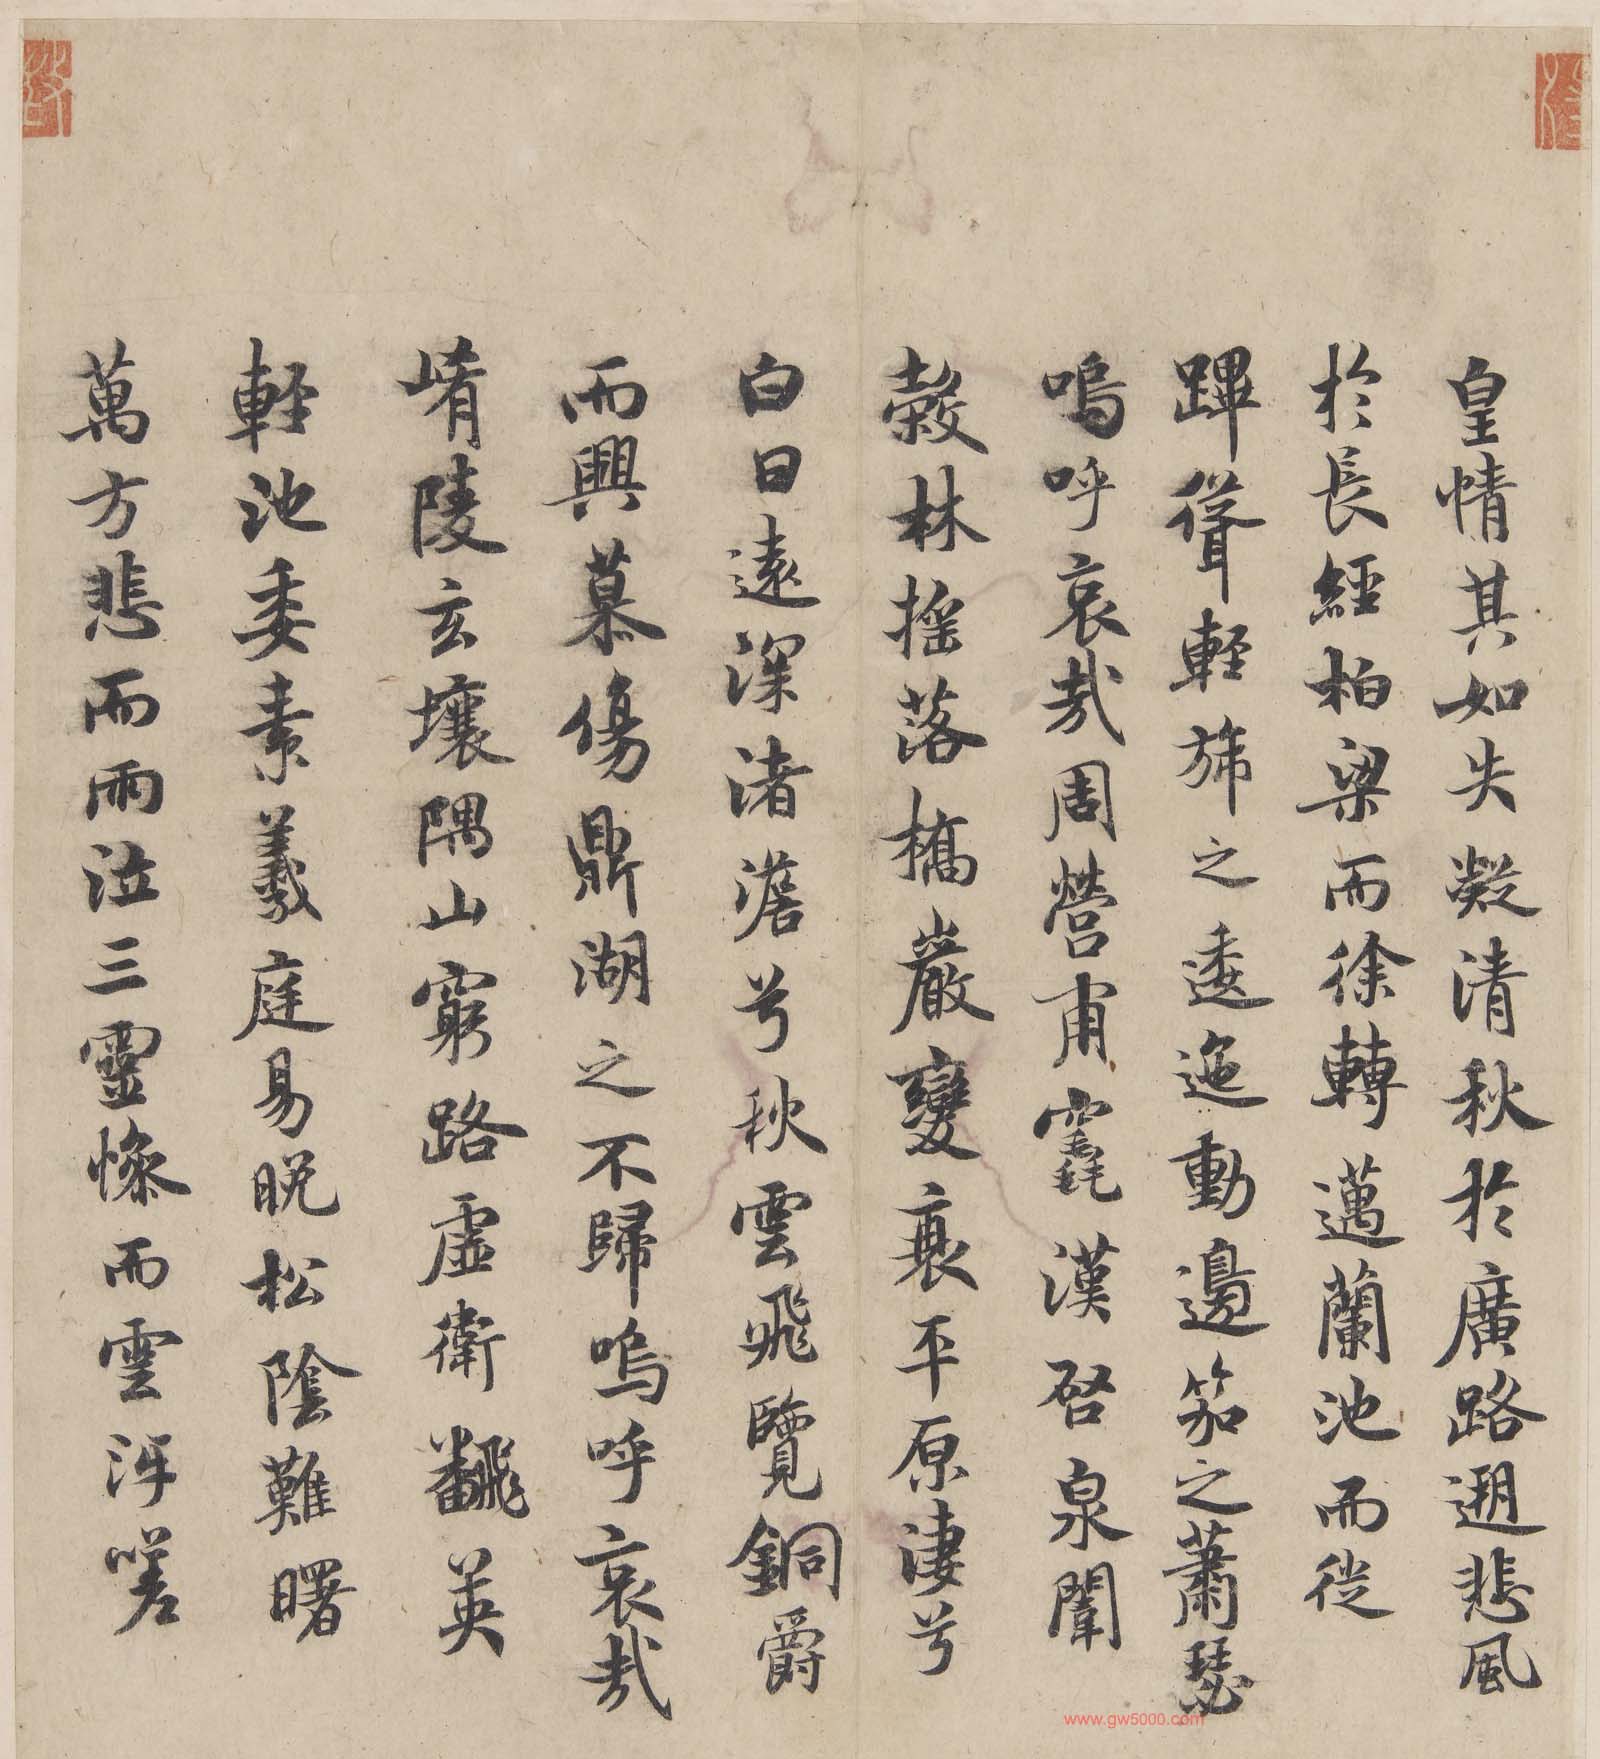 皇情其如失凝清秋於廣路遡悲風
於長經柏梁而徐轉邁蘭池而從
蹕聳輕旆之逶迤動邊笳之蕭瑟
嗚呼哀哉周營甫竁漢啓泉闈
穀林摇落橋巖變衰平原淒兮
白日遠深渚澹兮秋雲飛覽銅爵
而興慕傷鼎湖之不歸嗚呼哀哉
崤陵玄壤隅山窮路虛衛飜英
輕池委素羲庭易晩松陰難曙
萬方悲而雨泣三靈慘而雲沍嗟
www.gw5000.com